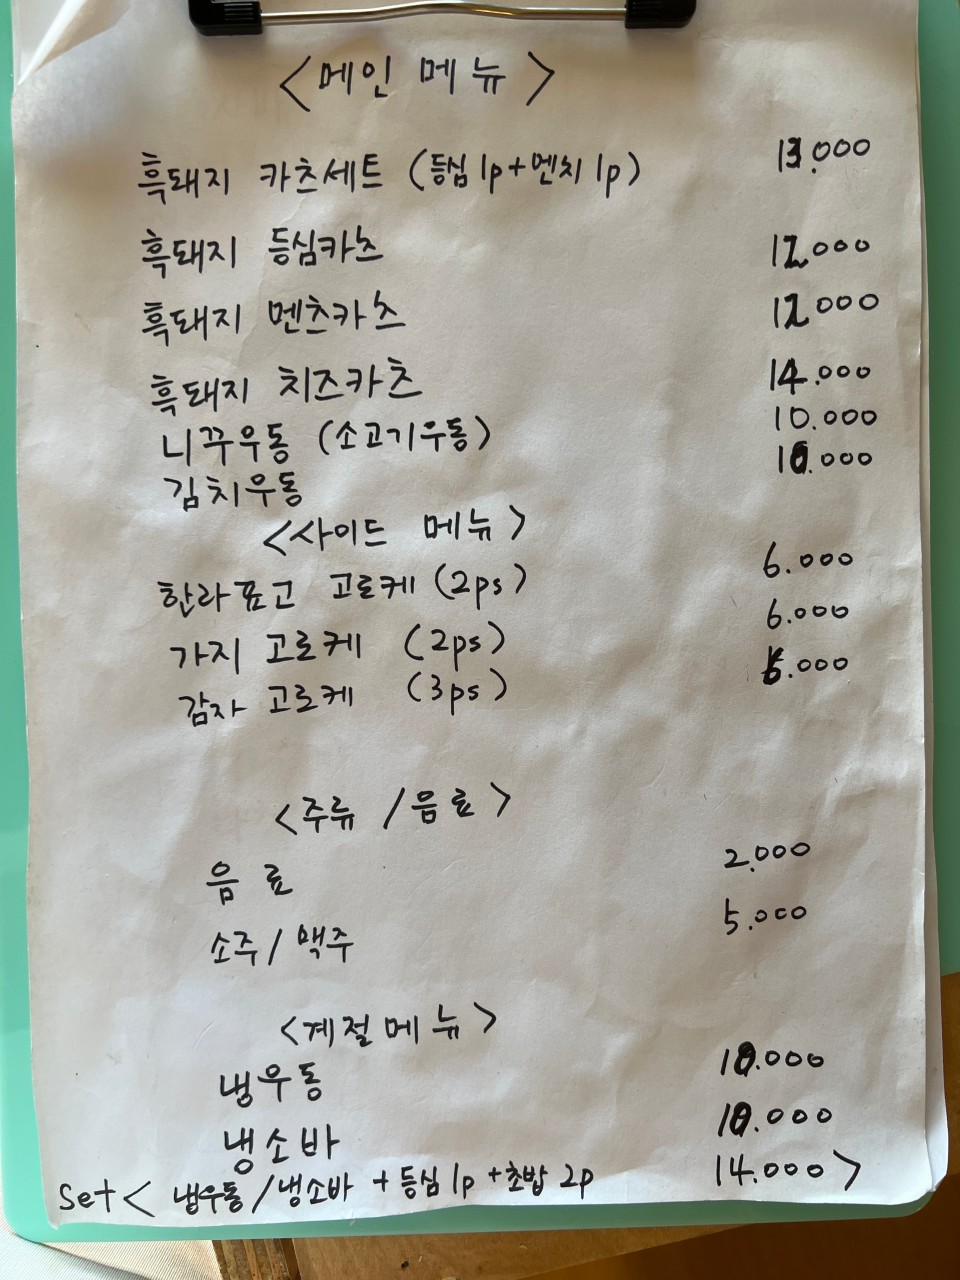 <메인 메뉴>
흑돼지 카츠세트 (등심 1p+멘치 1p) 13.000
흑돼지 등심카츠 12.000
흑돼지 멘츠카츠 12.000
흑돼지 치즈카츠 14.000
니꾸우동 (소고기우동) 10.000
김치우동 10.000
<사이드 메뉴>
한라표고 고로케 (2ps) 6.000
가지 고로케 (2ps) 6.000
감자 고로케 (3ps) 6.000
<주류 / 음료>
음료 2.000
소주 / 맥주 5.000
<계절메뉴>
냉우동 10.000
냉소바 10.000
set < 냉우동 / 냉소바 + 등심 1p + 초밥 2p 14.000 >